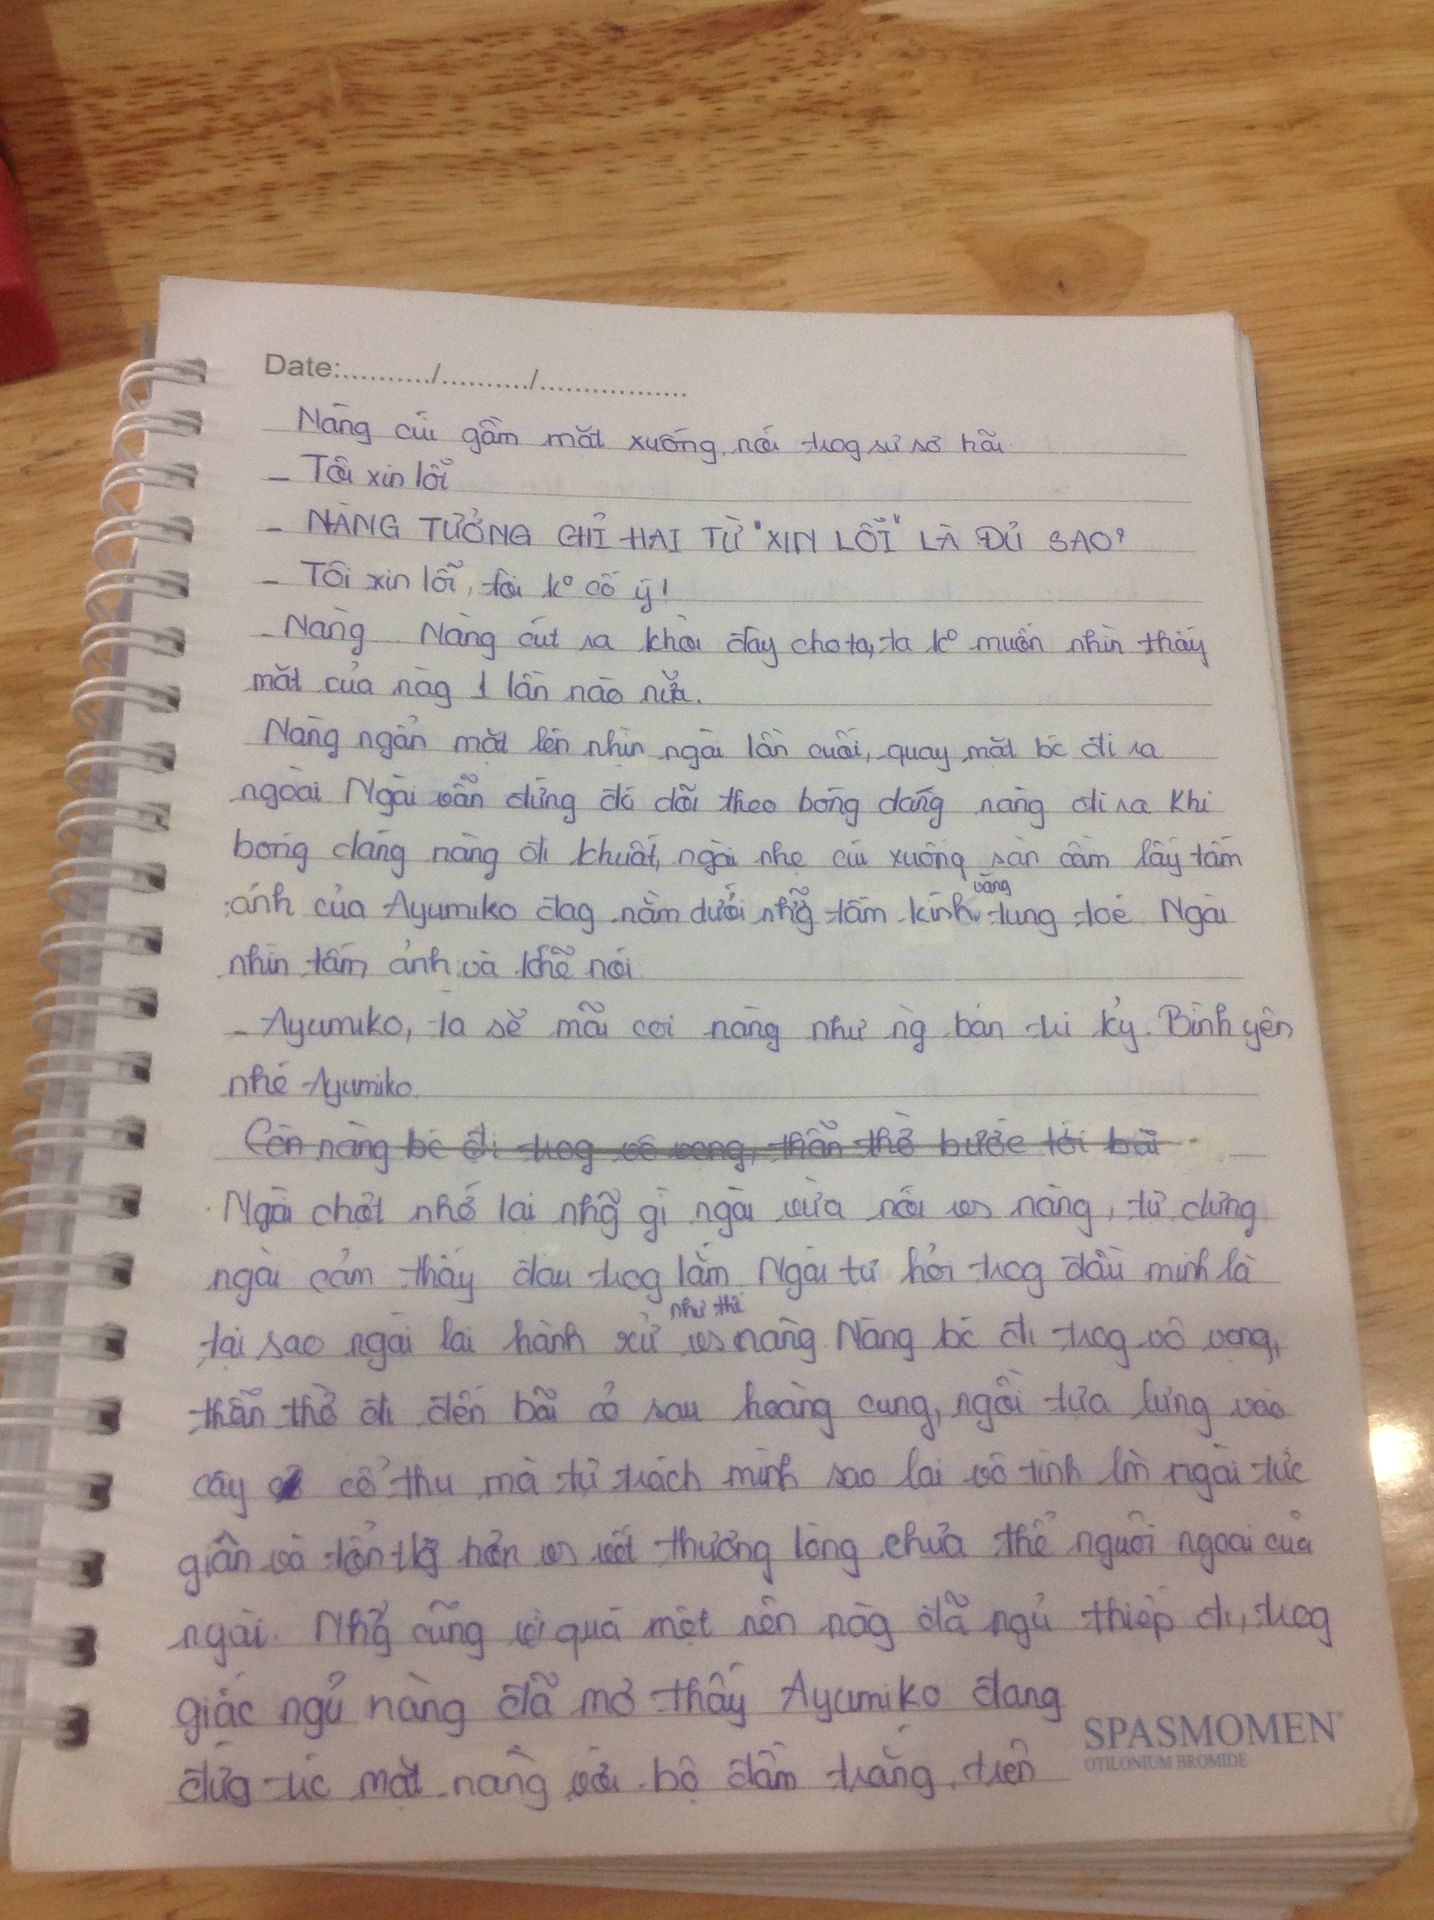 Date:........../........../................
Nàng cúi gầm mặt xuống, nói trog sự sợ hãi
- Tôi xin lỗi
- NÀNG TƯỞNG CHỈ HAI TỪ "XIN LỖI" LÀ ĐỦ SAO?
- Tôi xin lỗi, tôi ko cố ý!
- Nàng.. Nàng cút ra khỏi đây cho ta, ta ko muốn nhìn thấy
mặt của nàg 1 lần nào nữa.
Nàng ngẩn mặt lên nhìn ngài lần cuối, quay mặt bc đi ra
ngoài. Ngài vẫn đứng đó dõi theo bóng dáng nàng đi ra. Khi
bóng dáng nàng đi khuất, ngài nhẹ cúi xuống sàn cầm lấy tấm
ảnh của Ayumiko đag nằm dưới nhữg tấm kính văng tung toé. Ngài
nhìn tấm ảnh và khẽ nói
- Ayumiko, ta sẽ mãi coi nàng như ng bạn tri kỷ. Bình yên
nhé Ayumiko.
Còn nàng bc đi trog vô vọng, thẫn thờ bước tới bãi
Ngài chợt nhớ lại nhữg gì ngài vừa nói vs nàng, tự dưng
ngài cảm thấy đau trog lắm. Ngài tự hỏi trog đầu mình là
tại sao ngài lại hành xử như thế vs nàng. Nàng bc đi trog vô vọng,
thẫn thờ đi đến bãi cỏ sau hoàng cung, ngồi tựa lưng vào
cây cổ thụ mà tự trách mình sao lại vô tình lm ngài tức
giận và tổn thg hơn vs vết thương lòng chưa thể nguôi ngoai của
ngài. Nhg cũng vì quá mệt nên nàg đã ngủ thiếp đi, trog
giấc ngủ nàng đã mơ thấy Ayumiko đang
đứg trc mặt nàng với bộ đầm trắng, trên
SPASMOMEN®
OTILONIUM BROMIDE